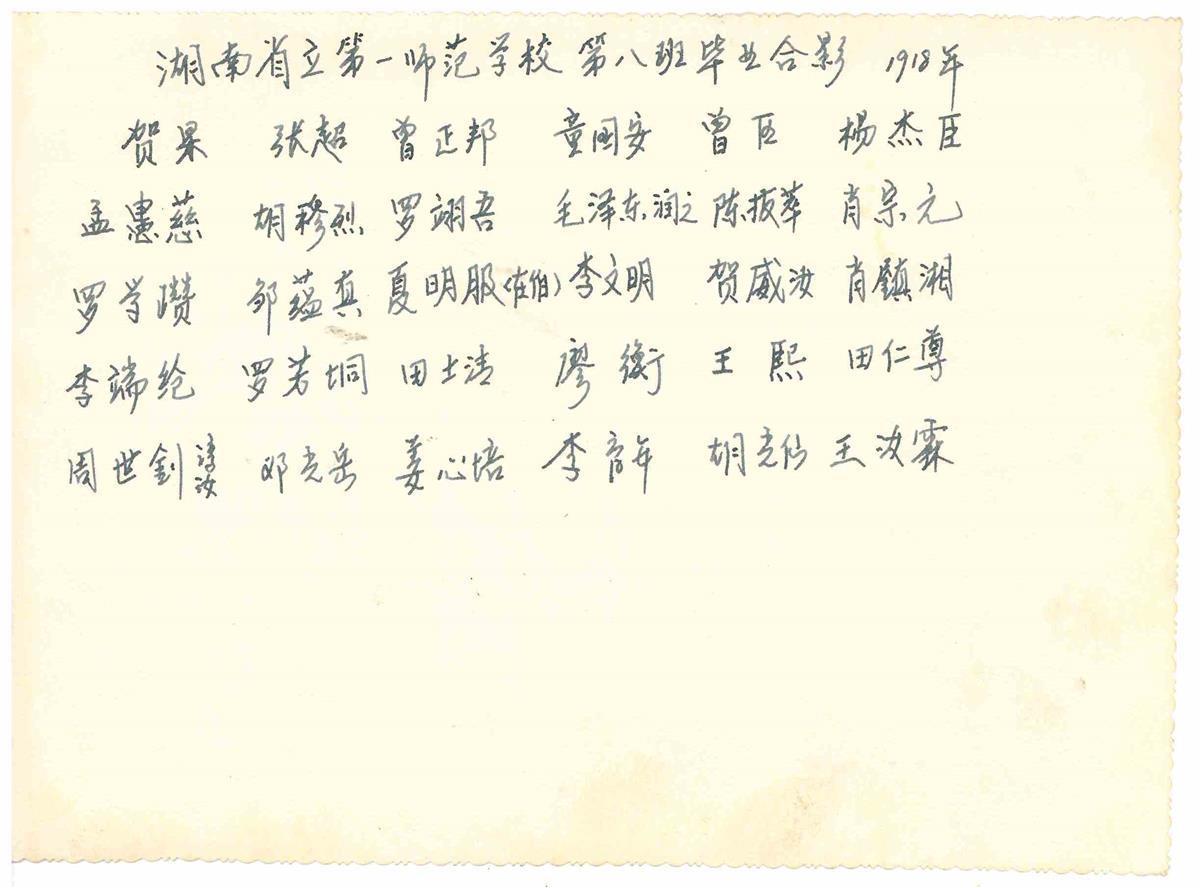 湖南省立第一师范学校 第八班毕业合影 1918年
贺果 张超 曾正邦 童国安 曾臣 杨杰臣
孟惠慈 胡穆烈 罗翊吾 毛泽东,润之 陈拔萃 肖宗元
罗学瓒 邹蕴真 夏明服(在伯) 李文明 贺威汝 肖鎮湘
李端纶 罗若垌 田士清 廖衡 王熙 田仁尊
周世釗 淳汝 邓光岳 姜心培 李育年 胡光 王汝霖